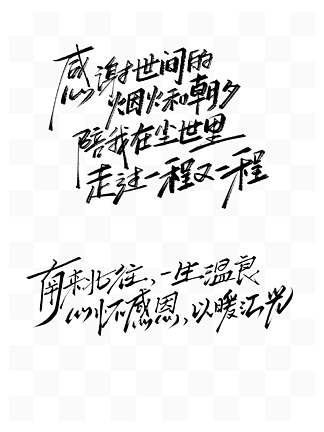 感谢世间的
烟火和朝夕
陪我在尘世里
走过一程又一程
南来北往、一生温良
心怀感恩，以暖汇光